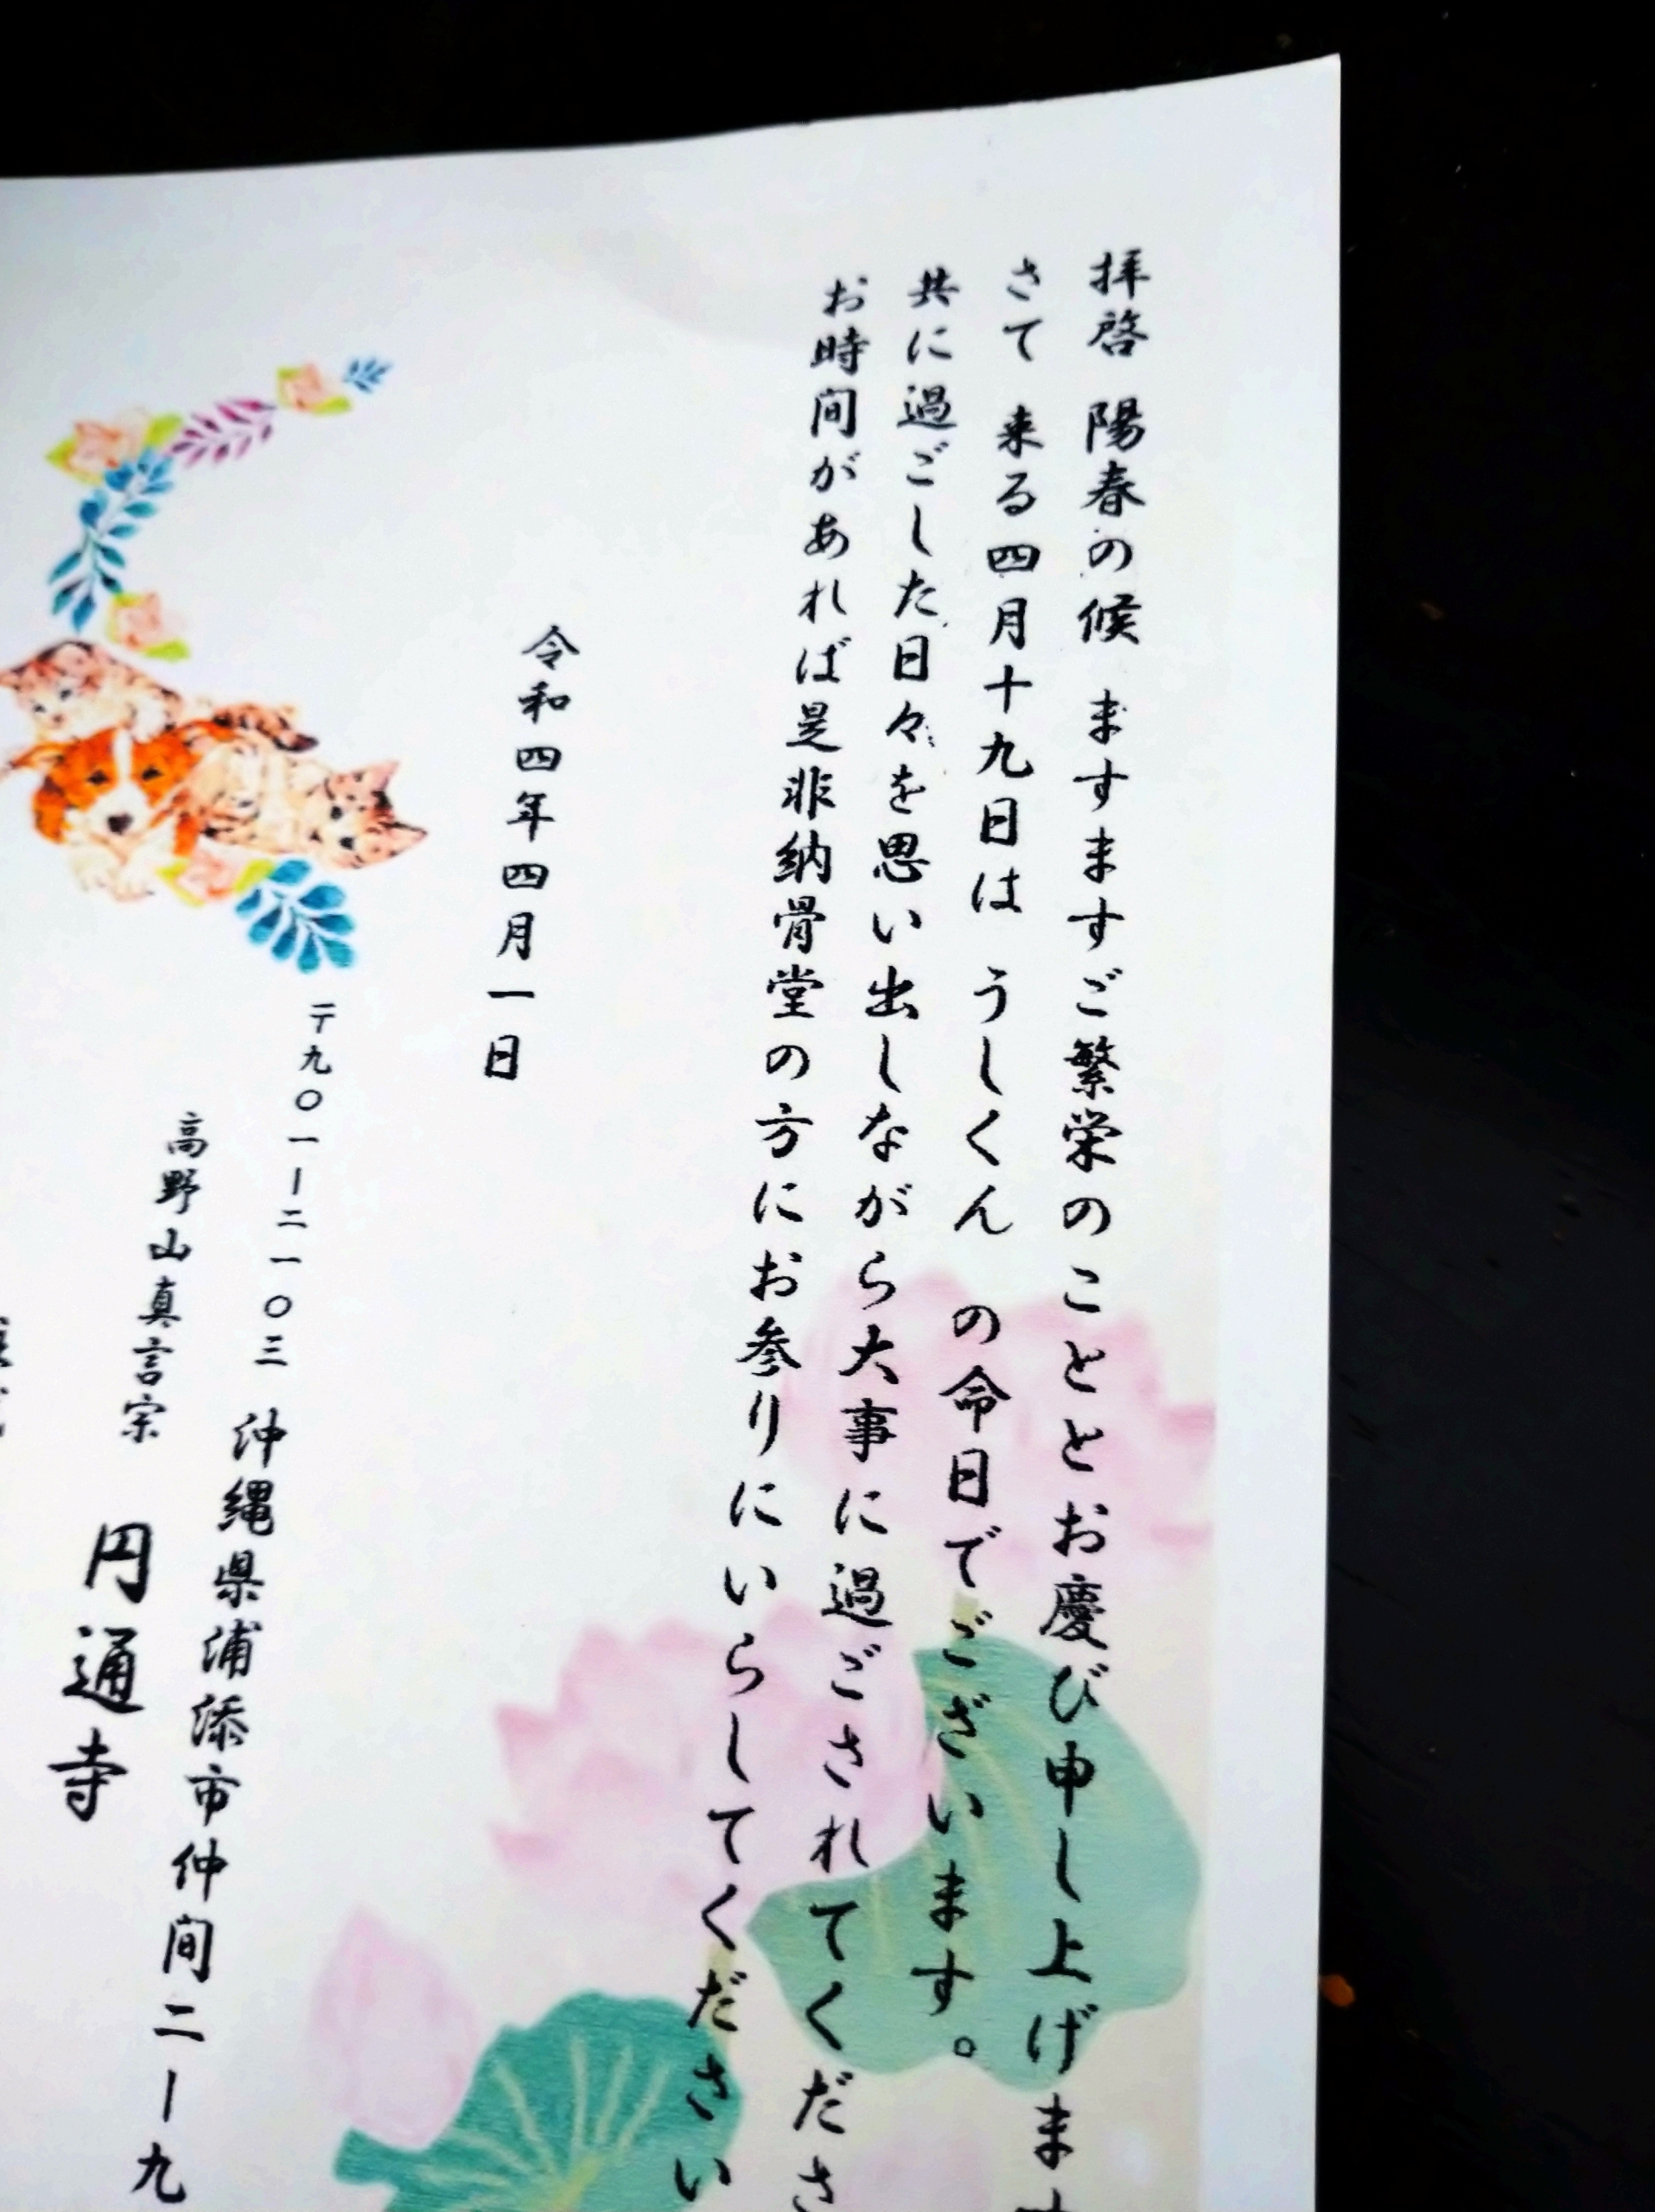 拝啓 陽春の候 ますますご繁栄のこととお慶び申し上げま
さて 来る四月十九日は うしくん の命日でございます。
共に過ごした日々を思い出しながら大事に過ごされてくださ
お時間があれば是非納骨堂の方にお参りにいらしてください
令和四年四月一日
〒九〇一ー二一〇三 沖縄県浦添市仲間二ー九
高野山真言宗 円通寺